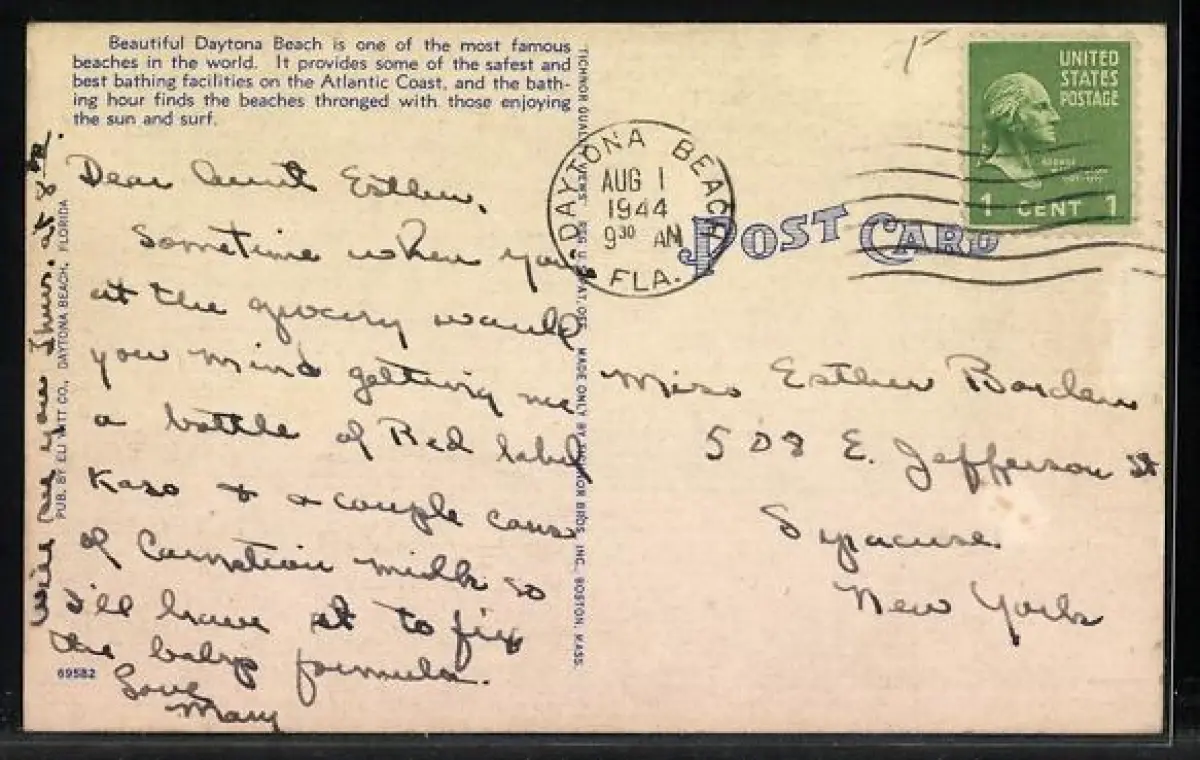 Beautiful Daytona Beach is one of the most famous
beaches in the world. It provides some of the safest and
best bathing facilities on the Atlantic Coast, and the bath-
ing hour finds the beaches thronged with those enjoying
the sun and surf.
Dear Aunt Esther,
Sometime when you're
at the grocery would
you mind getting me
a bottle of Red label
Karo & a couple cans
of Carnation milk so
I'll have it to fix
the baby formula.
Love
Mary
Will see you Thurs. at 8
69582
PUB. BY ELI WITT CO., DAYTONA BEACH, FLORIDA
TICHNOR REG. U. S. PAT. OFF. MADE ONLY BY TICHNOR BROS. INC., BOSTON, MASS.
DAYTONA BEACH
AUG 1
1944
9 30 AM
FLA.
POST CARD
UNITED
STATES
POSTAGE
1 CENT 1
Miss Esther Borden
508 E. Jefferson St
Syracuse
New York